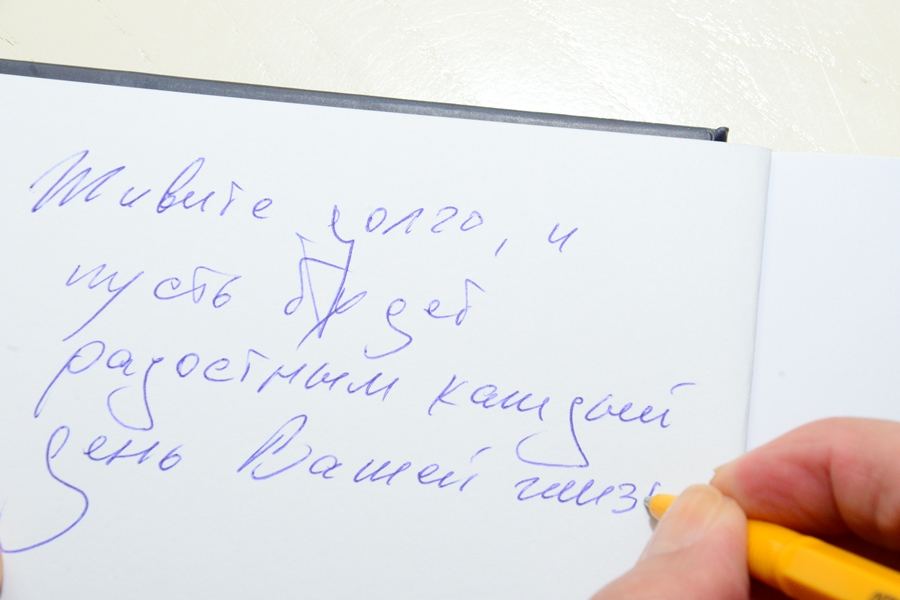 Живите долго, и
пусть будет
радостным каждый
день Вашей жиз